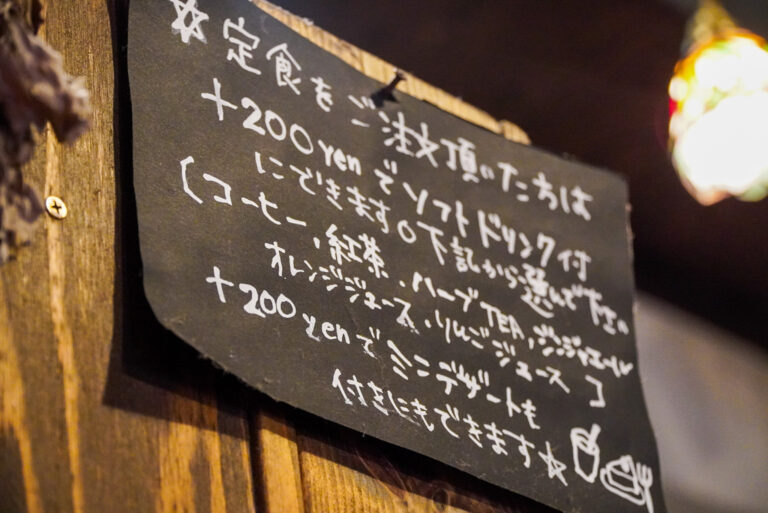 ☆定食をご注文頂いた方は
+200yenでソフトドリンク付
にできます。下記から選んで下さい
(コーヒー・紅茶・ハーブTEA・ジンジャエール
オレンジジュース・りんごジュース]
+200yenでミニデザートも
付きにもできます☆